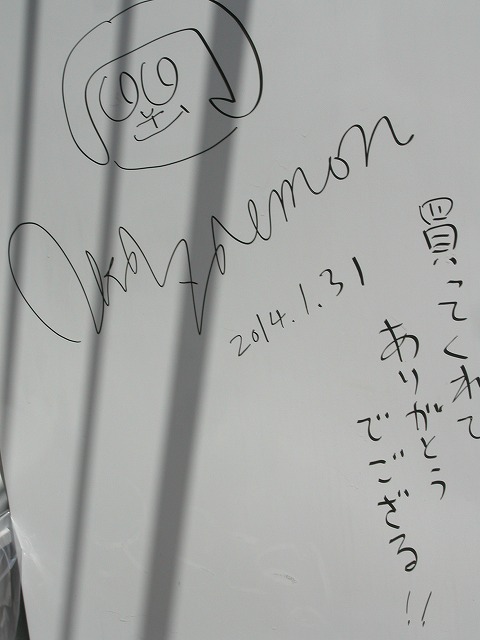 2014.1.31
買ってくれて
ありがとう
でござる!!